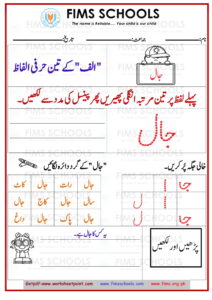 FIMS SCHOOLS
The name is Reliable.... Your child is our child
نام:
جماعت:
تاریخ:
"الف" کے تین حرفی الفاظ
جال
پہلے لفظ پر تین مرتبہ انگلی پھیریں پھر پینسل کی مدد سے لکھیں۔
جال
خالی جگہ پُر کریں۔
"جال" کے گرد دائرہ لگائیں
جا
ا ل
جا
ل
جال رات جال کاٹ
جال جال کاج جال
سال جال جال
جال پاک جال داغ
یہ کس کا جال ہے۔
پڑھیں اور لکھیں
Getpdf-www.worksheetpoint.com www.fimsschools.com www.fims.org.pk